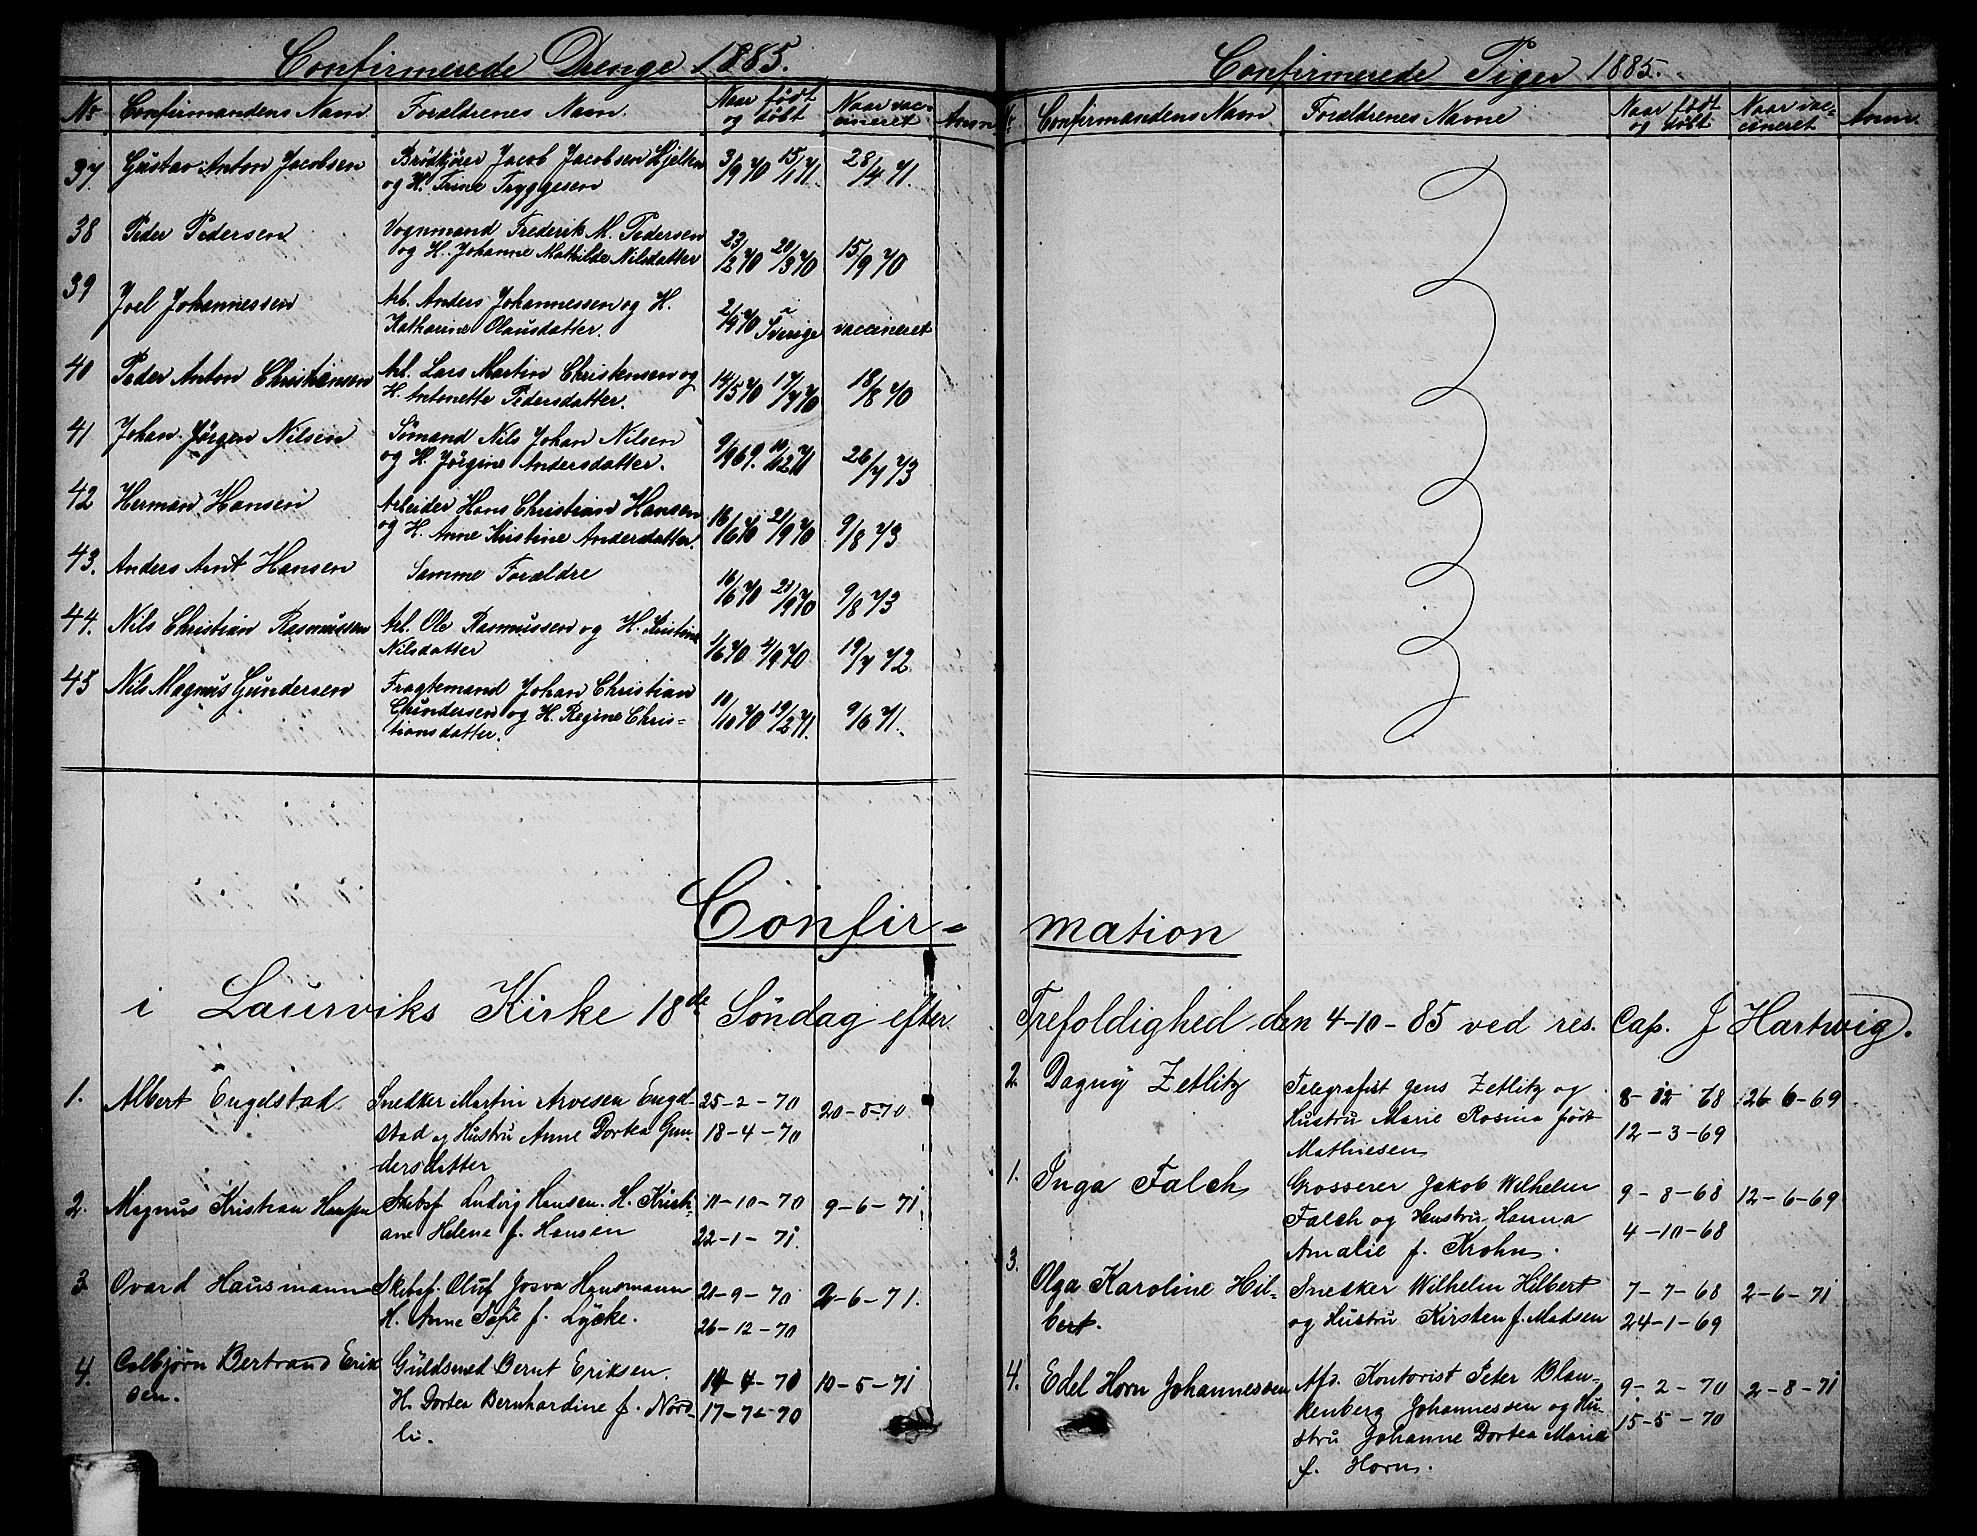 Confirmerede Drenge 1885.
No Confirmandens Navn Forældrenes Navn. Naar født og døbt Naar vaccineret Anm
37. Gustav Anton Jacobsen Brødkjører Jacob Jacobsen 3/9 70 15/1 71. 28/4 71.
og H. Trine Tryggesen
38 Peder Pedersen Vognmand Frederik M. Pedersen 23/2 70 20/3 70 15/9 70
og H. Johanne Mathilde Nilsdatter
39 Joel Johannessen Arb. Anders Johannessen og H. 2/9 70 Sverige vaccineret
Katharine Olausdatter.
40 Peder Anton Christensen Arb. Lars Martin Christensen og 14/5 70 17/7 70 18/8 70
H. Antonette Pedersdatter.
41 Johan Jørgen Nilsen Sømand Nils Johan Nilsen 9/9 69. 10/12 71 26/7 73
og H. Jørgine Andersdatter.
42 Herman Hansen Arbeider Hans Christian Hansen 16/6 70 21/9 70 9/8 73
og H. Anne Kristine Andersdatter.
43. Anders Arnt Hansen Samme Forældre 16/6 70 21/9 70 9/8 73
44. Nils Christian Rasmussen Arb. Ole Rasmussen og H. Kristine 1/6 70 4/9 70 19/7 72
Nilsdatter
45 Nils Magnus Gundersen Fragtemand Johan Christian 10/10 70 19/2 71. 9/6 71.
Gundersen og H. Regine Chris-
tiansdatter.
Confirmerede Piger 1885.
Confirmandens Navn Forældrenes Navne Naar født og døbt Naar vaccineret Anm.
Confir- mation
i Laurviks Kirke 18de Søndag efter Trefoldighed den 4-10-85 ved res. Cap. J Hartwig.
1. Albert Engelstad Snedker Martin Arvesen Engel- 25-2-70 20-8-70
stad og Hustru Anne Dortea Gun- 18-4-70
dersdatter
2. Magnus Kristian Hansen Skibsf Ludvig Hansen. H. Kristi- 11-10-70 9-6-71
ane Helene f. Hansen 22-1-71.
3 Ovard Hausmann Skibsf. Oluf Josva Hausmann 20-9-70 2-6-71.
H. Anne Sofie f. Lycke. 26-12-70
4. Colbjørn Bertrand Erik Guldsmed Bernt Eriksen. 14-4-70 10-5-71
sen. H. Dortea Bernhardine f. Nord- 17-7-70
li.
2. Dagny Zetlitz Telegrafist Jens Zetlitz og 8-12-68 26-6-69
Hustru Marie Rosina født 12-3-69
Mathiesen
1. Inga Falch Grosserer Jakob Wilhelm 9-8-68 12-6-69
Falch og Hustru Hanna 4-10-68
Amalie f. Krohn.
3. Olga Karoline Hil- Snedker Wilhelm Hilbert 7-7-68 2-6-71
bert. og Hustru Kirsten f. Madsen 24-1-69
4. Edel Horn Johannessen Afs. Kontorist Peter Blan- 9-2-70 2-8-71
kenberg Johannessen og Hu- 15-5-70
stru Johanne Dortea Marie
f. Horn.